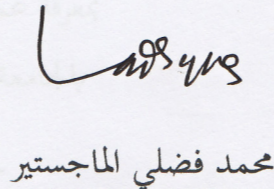 محمد فضلي الماجستير